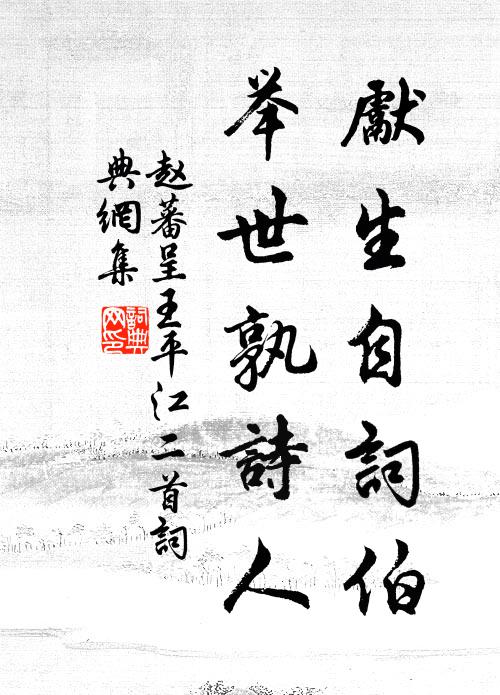 獻生自詞伯
举世孰詩人
赵蕃呈王平江二首詞
典網集
詞典网印